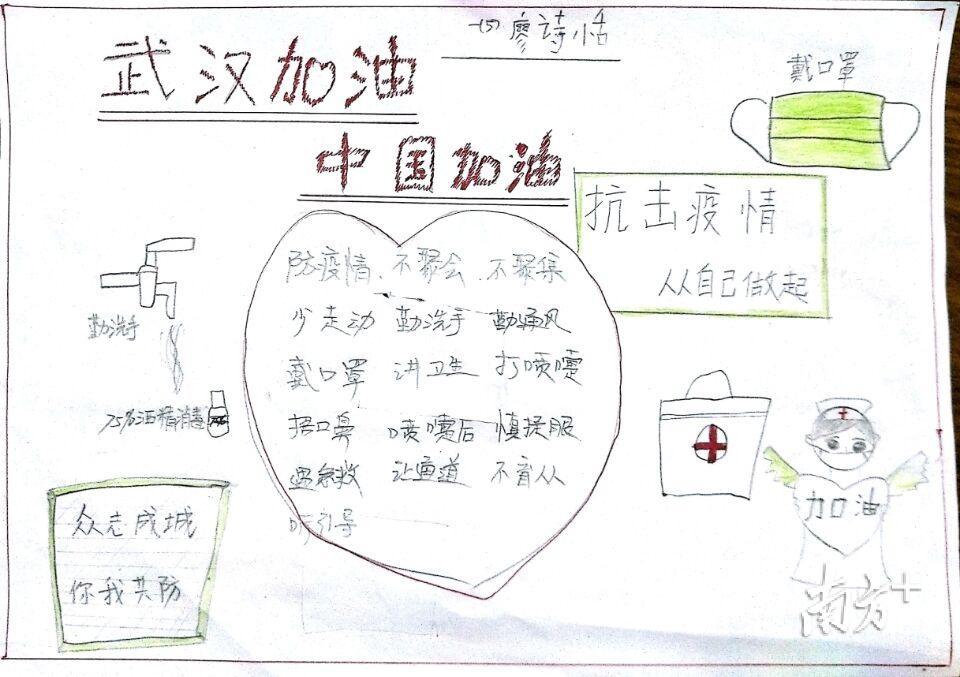 一(5) 廖诗恬
武汉加油
中国加油
戴口罩
抗击疫情
从自己做起
防疫情、不聚会、不聚集
少走动 勤洗手 勤通风
戴口罩 讲卫生 打喷嚏
捂口鼻 喷嚏后 慎揉眼
遇急救 让通道 不盲从
听引导
勤洗手
75%酒精消毒
众志成城
你我共防
加油
南方+